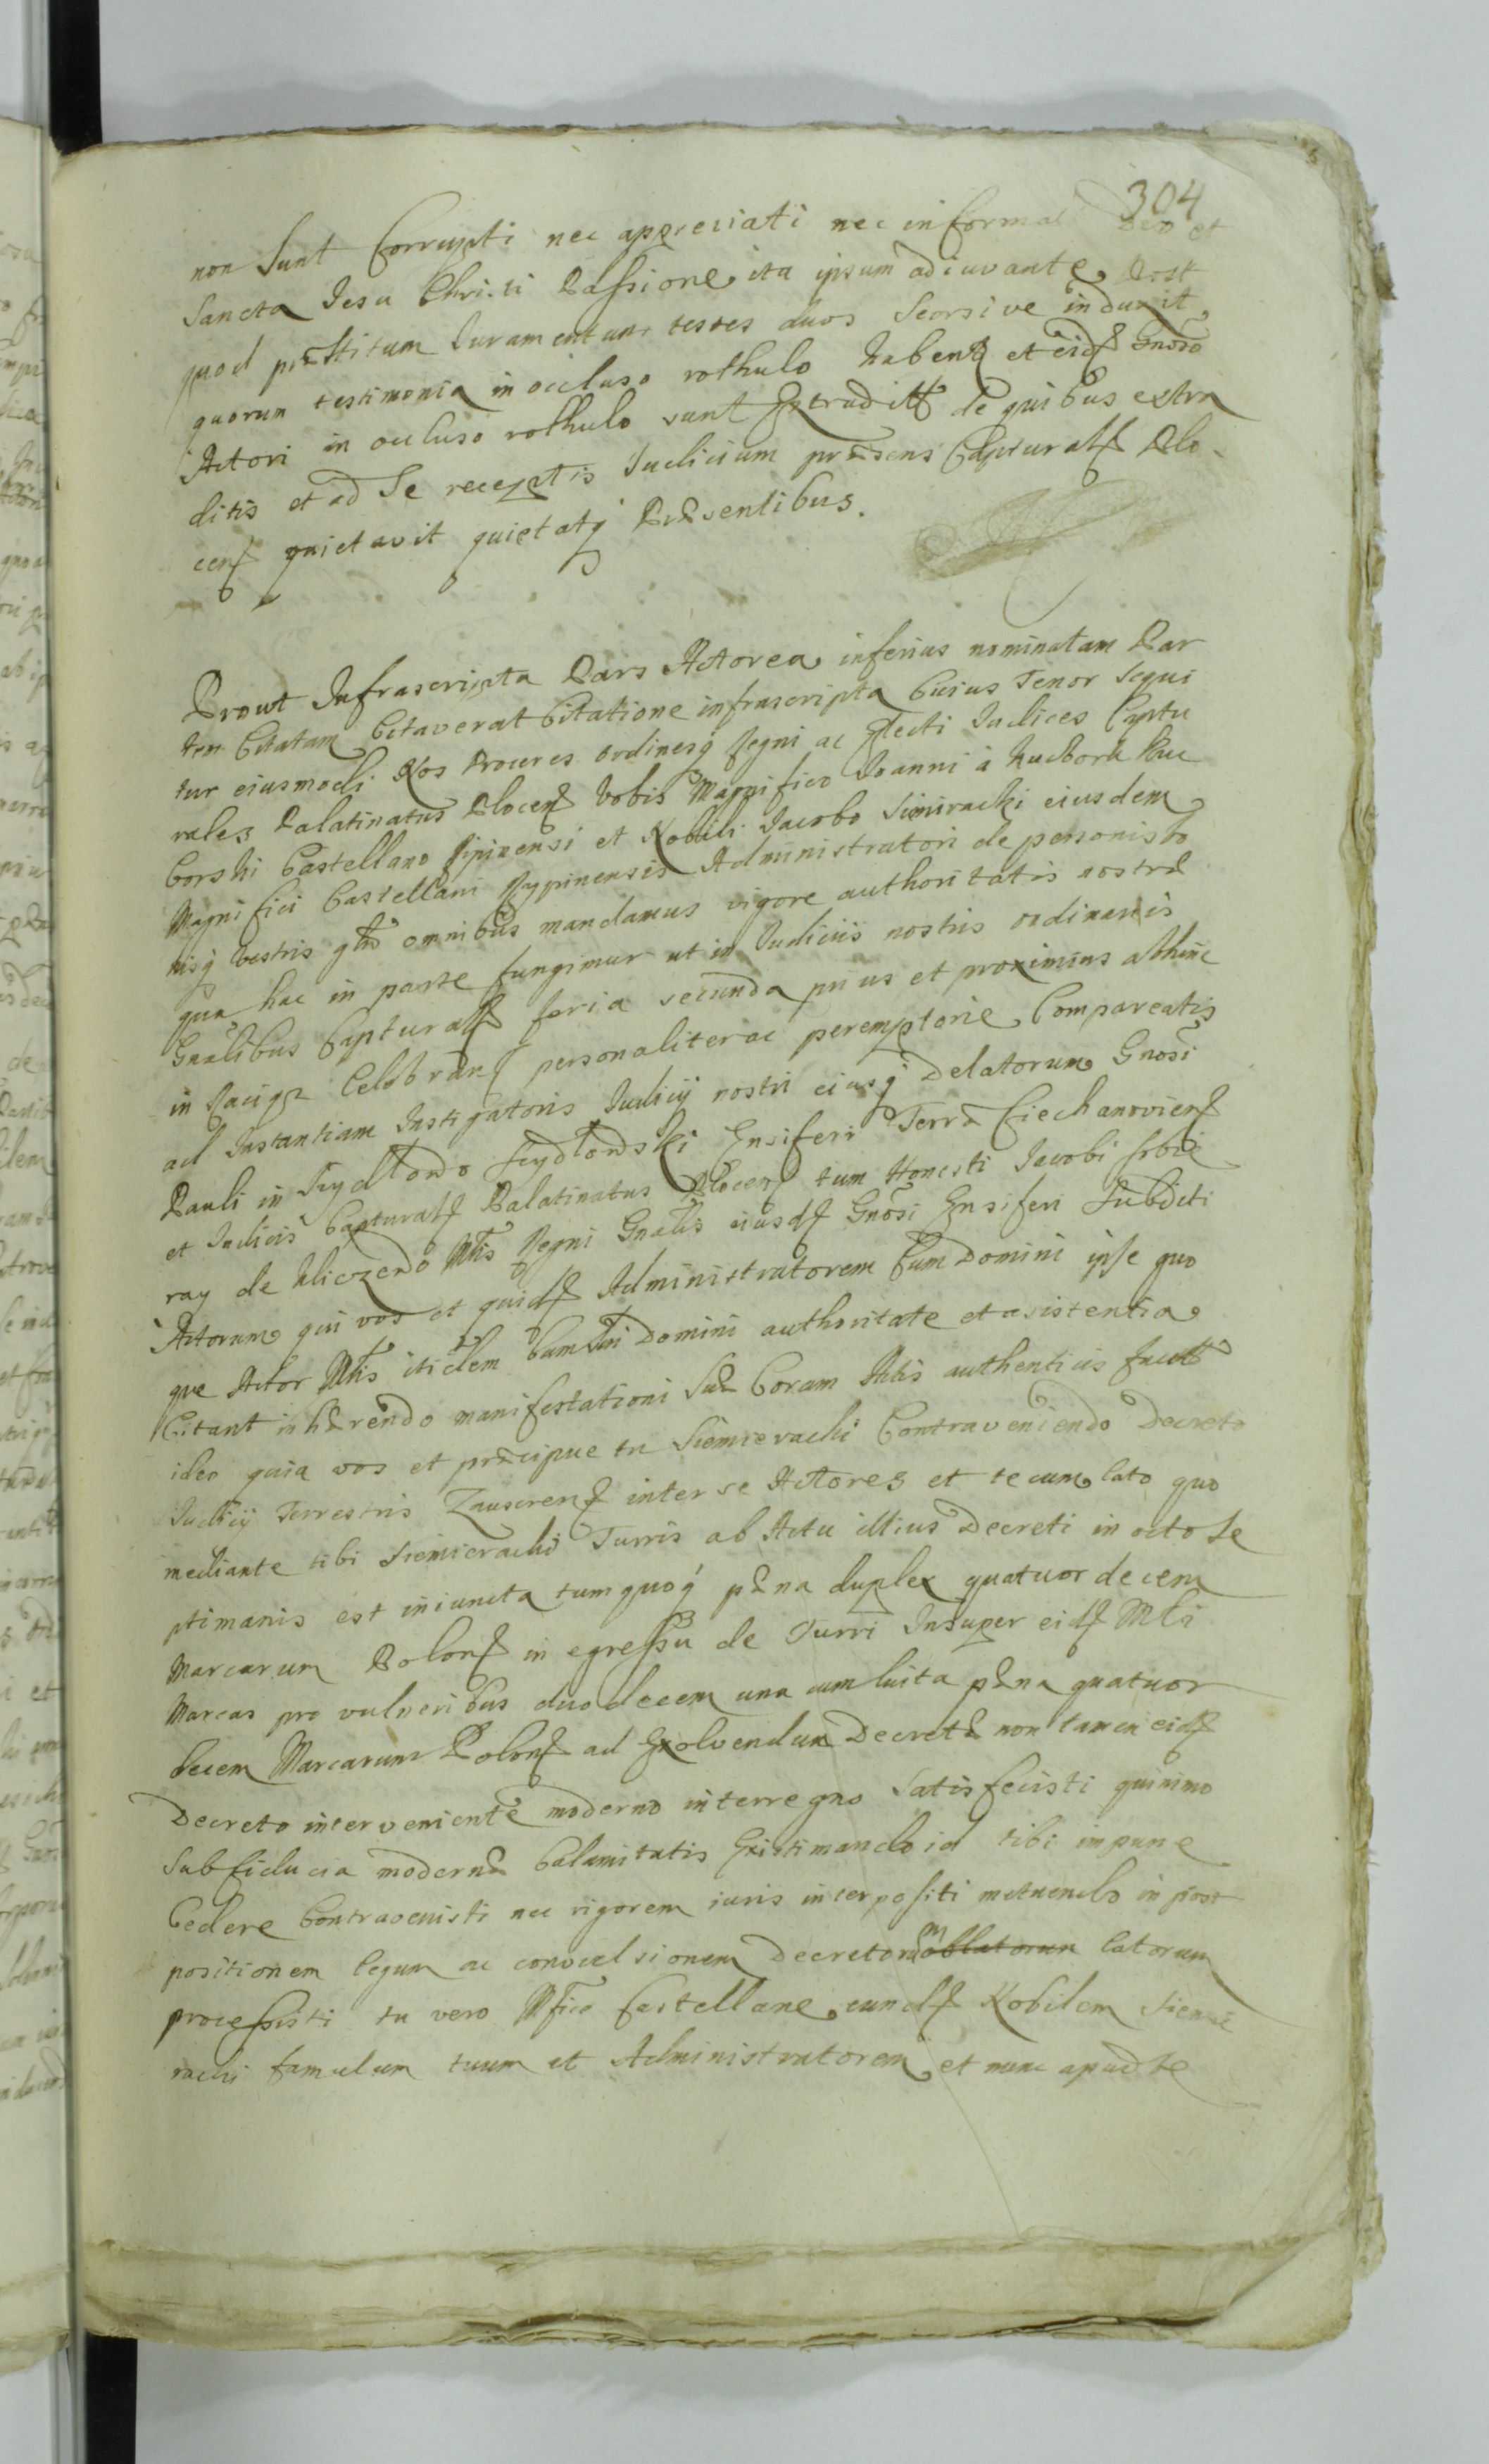 304
non sunt Corrupti nec appreciati nec informa Deo et
Sancta Jesu Christi Passione ita ipsum adiuvante Post
quod præstitum Iuramentum testes duos Seorsive induxit
quorum testimonia in occluso rothulo habent et eid Gnoso
Actori in occluso rothulo sunt Extradit de quibus extra
ditis et ad Se receptis Iudicium præsens Captural Plo
cen quietavit quietatq Præsentibus.
Prout Infrascripta Pars Actorea inferius nominatam Par
tem Citatam Citaverat Citatione infrascripta Cuius Tenor Sequi
tur eiusmodi Nos Proceres ordinesq Regni ac Electi Iudices Captu
rales Palatinatus Plocen Vobis Magnifico Joanni à Kucbork Kuc
borski Castellano Ripinensi et Nobili Jacobo Simiracki eiusdem
Magnifici Castellani Rypinensis Administratori de personis bo
nisq vestris gñr omnibus mandamus vigore authoritatis nostræ
qua hac in parte fungimur ut in Iudiciis nostris ordinariis
Gnalibus Captural feria secunda prius et proximius abhinc
in Raciąz Celebran personaliter ac peremptorie Compareatis
ad Instantiam Instigatoris Iudicij nostri eiusq Delatorum Gnosi
Pauli in Szydłowo Szydłowski Ensiferi Terræ Ciechanovien
et Iudicis Captural Palatinatus Plocen tum Honesti Jacobi
ray de Uliczevo Mtis Regni Gnalis eiusd Gnosi Ensiferi Subditi
Actorum qui vos et quid Administratorem Cum Domini ipse quo
que Actor Mtis itidem Cum sui Domini authoritate et asistentia
Citant inhærendo manifestationi Suæ Coram Actis authenticis fact
ideo quia vos et præcipue tu Siemieracki Contraveniendo Decreto
Iudicij Terrestris Zauscren inter se Actores et tecum lato quo
mediante tibi Siemieracki Turris ab Actu illius Decreti in octo Se
ptimanis est iniuncta tumquoq pæna duplex quatuordecem
Marcarum Polon in egressu de Turri Insuper eid Mti
Marcas pro vulneribus duodecem una cum luita pæna quatuor
decem Marcarum Polon ad Exolvendum Decretæ non tamen eid
Decreto interveniente moderno interregno Satisfecisti quinimo
Sub fiducia modernæ Calamitatis Existimando id tibi impune
Cedere Contravenisti nec rigorem iuris interpositi metuendo in post
positionem legum ac convulsionem Decretorum oblatorum latorum
processisti tu vero Mfice Castellane eund Nobilem Siemie
racki famulum tuum et Administratorem et nunc apud te